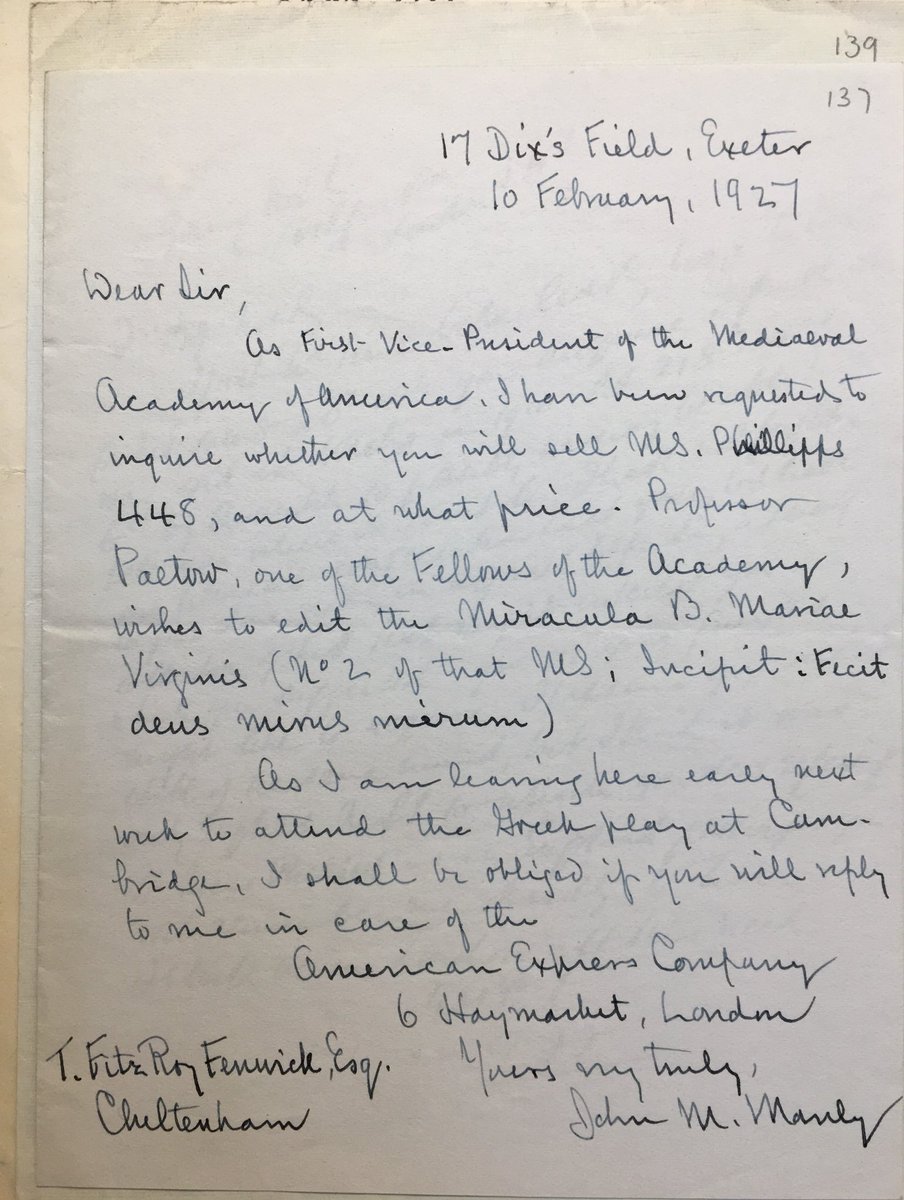 139
137
17 Dix's Field, Exeter
10 February, 1927
Dear Sir,
As First Vice-President of the Mediaeval
Academy of America, I have been requested to
inquire whether you will sell MS. Phillipps
448, and at what price. Professor
Paetow, one of the Fellows of the Academy,
wishes to edit the Miracula B. Mariae
Virginis (No 2 of that MS; Incipit: Fecit
deus minus mirum)
As I am leaving here early next
week to attend the Greek play at Cam-
bridge, I shall be obliged if you will reply
to me in care of the
American Express Company
6 Haymarket, London
T. FitzRoy Fenwick, Esq. Yours very truly,
Cheltenham John M. Manly